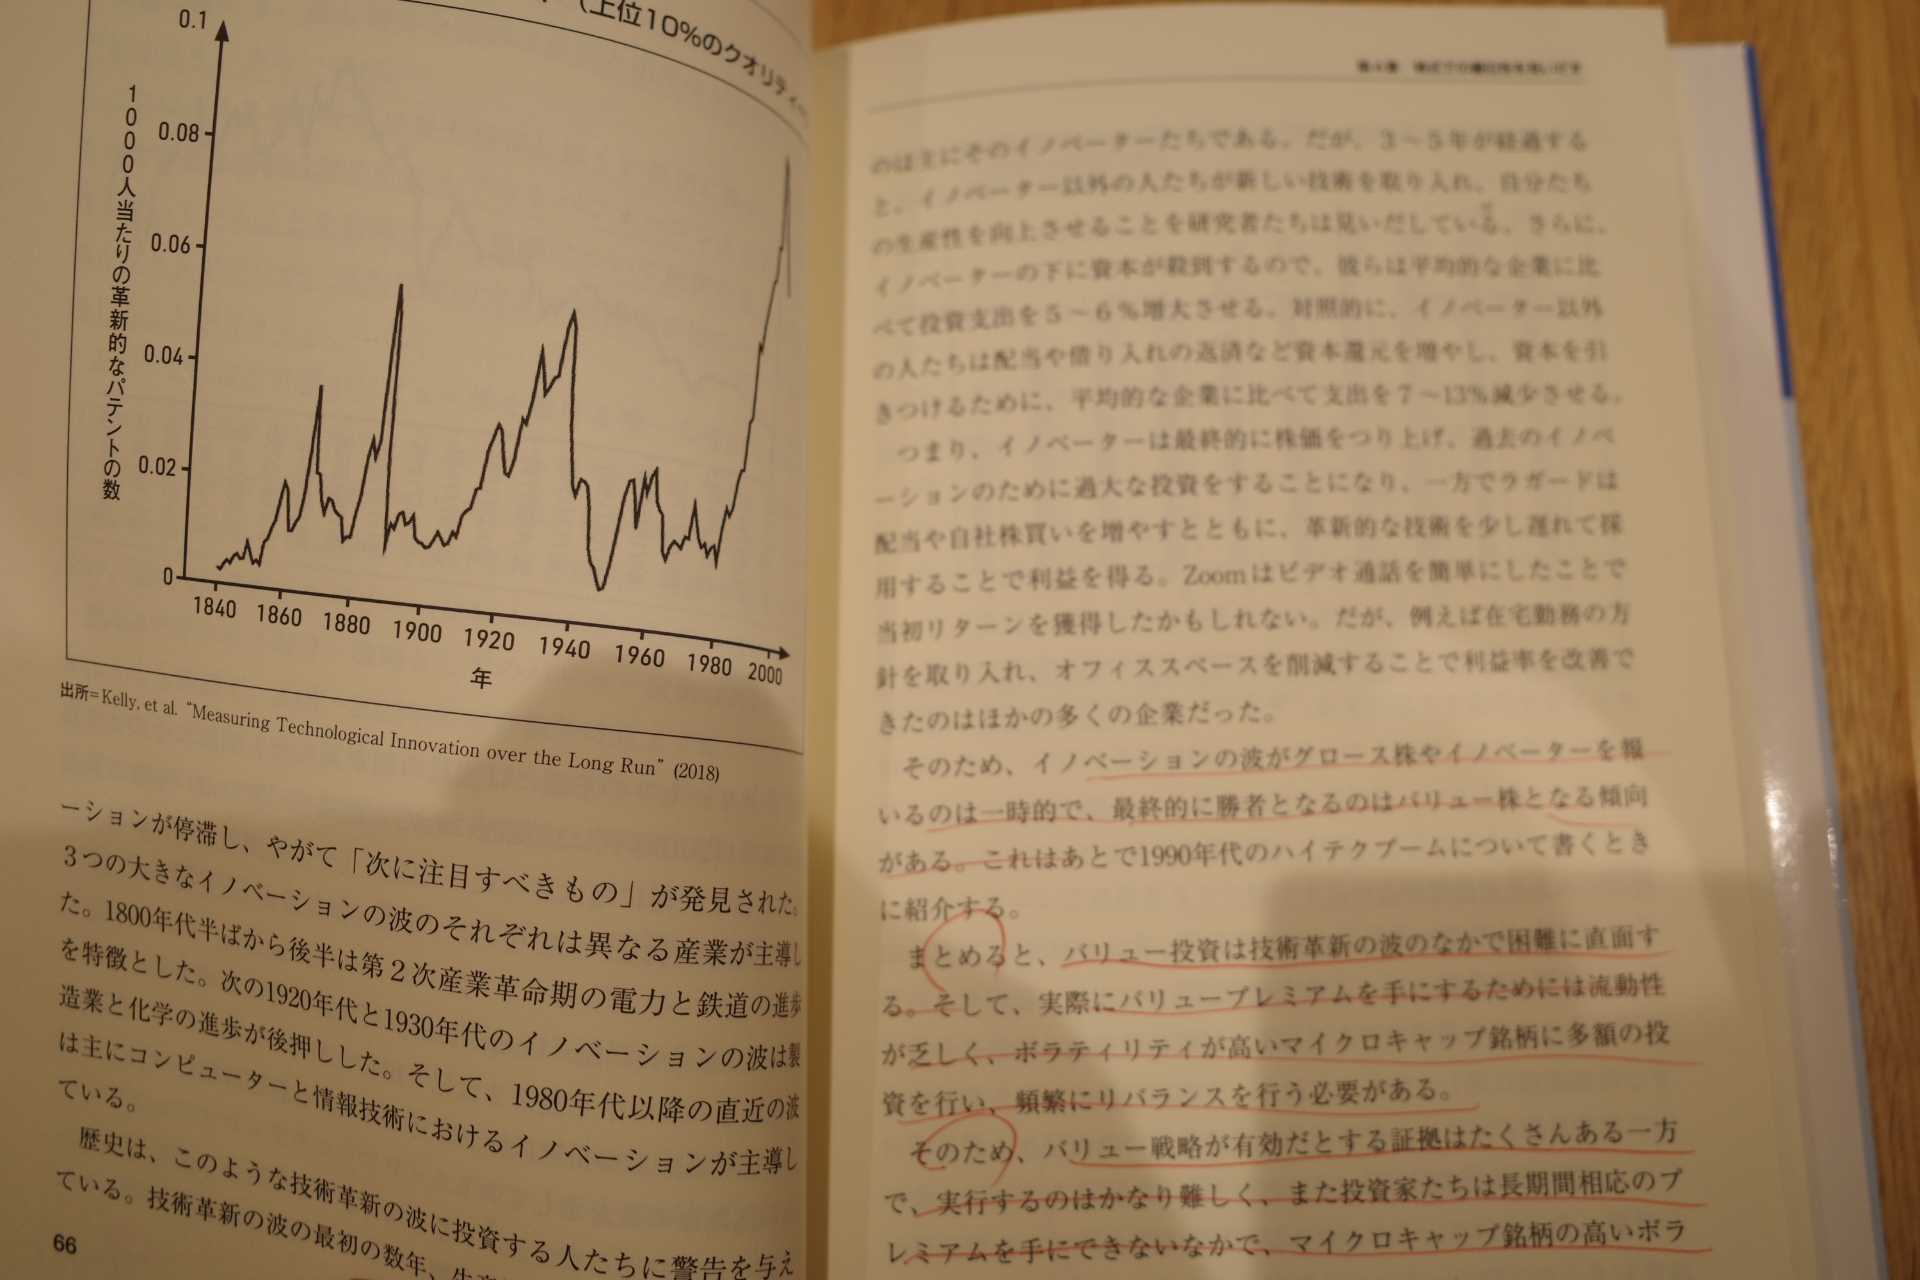 （上位10%のクオリティー
0.1
0.08
0.06
0.04
0.02
0
1000人当たりの革新的なパテントの数
1840 1860 1880 1900 1920 1940 1960 1980 2000
年
出所=Kelly, et al. “Measuring Technological Innovation over the Long Run” (2018)
ーションが停滞し、やがて「次に注目すべきもの」が発見された。
3つの大きなイノベーションの波のそれぞれは異なる産業が主導し
た。1800年代半ばから後半は第2次産業革命期の電力と鉄道の進歩
を特徴とした。次の1920年代と1930年代のイノベーションの波は製
造業と化学の進歩が後押しした。そして、1980年代以降の直近の波
は主にコンピューターと情報技術におけるイノベーションが主導し
ている。
歴史は、このような技術革新の波に投資する人たちに警告を与え
ている。技術革新の波の最初の数年、
66
のは主にそのイノベーターたちである。だが、3～5年が経過する
と、イノベーター以外の人たちが新しい技術を取り入れ、自分たち
の生産性を向上させることを研究者たちは見いだしている。さらに、
イノベーターの下に資本が殺到するので、彼らは平均的な企業に比
べて投資支出を5～6%増大させる。対照的に、イノベーター以外
の人たちは配当や借り入れの返済など資本還元を増やし、資本を引
きつけるために、平均的な企業に比べて支出を7～13%減少させる。
つまり、イノベーターは最終的に株価をつり上げ、過去のイノベ
ーションのために過大な投資をすることになり、一方でラガードは
配当や自社株買いを増やすとともに、革新的な技術を少し遅れて採
用することで利益を得る。Zoomはビデオ通話を簡単にしたことで
当初リターンを獲得したかもしれない。だが、例えば在宅勤務の方
針を取り入れ、オフィススペースを削減することで利益率を改善で
きたのはほかの多くの企業だった。
そのため、イノベーションの波がグロース株やイノベーターを報
いるのは一時的で、最終的に勝者となるのはバリュー株となる傾向
がある。これはあとで1990年代のハイテクブームについて書くとき
に紹介する。
まとめると、バリュー投資は技術革新の波のなかで困難に直面す
る。そして、実際にバリュープレミアムを手にするためには流動性
が乏しく、ボラティリティが高いマイクロキャップ銘柄に多額の投
資を行い、頻繁にリバランスを行う必要がある。
そのため、バリュー戦略が有効だとする証拠はたくさんある一方
で、実行するのはかなり難しく、また投資家たちは長期間相応のプ
レミアムを手にできないなかで、マイクロキャップ銘柄の高いボラ